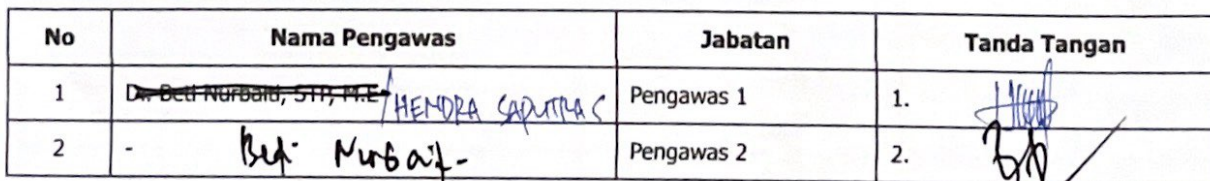 No Nama Pengawas Jabatan Tanda Tangan
1 Dr. Beti Nurbaiti, STP, M.E / HENDRA SAPUTRA S Pengawas 1 1.
2 - Beti Nurbaiti - Pengawas 2 2.